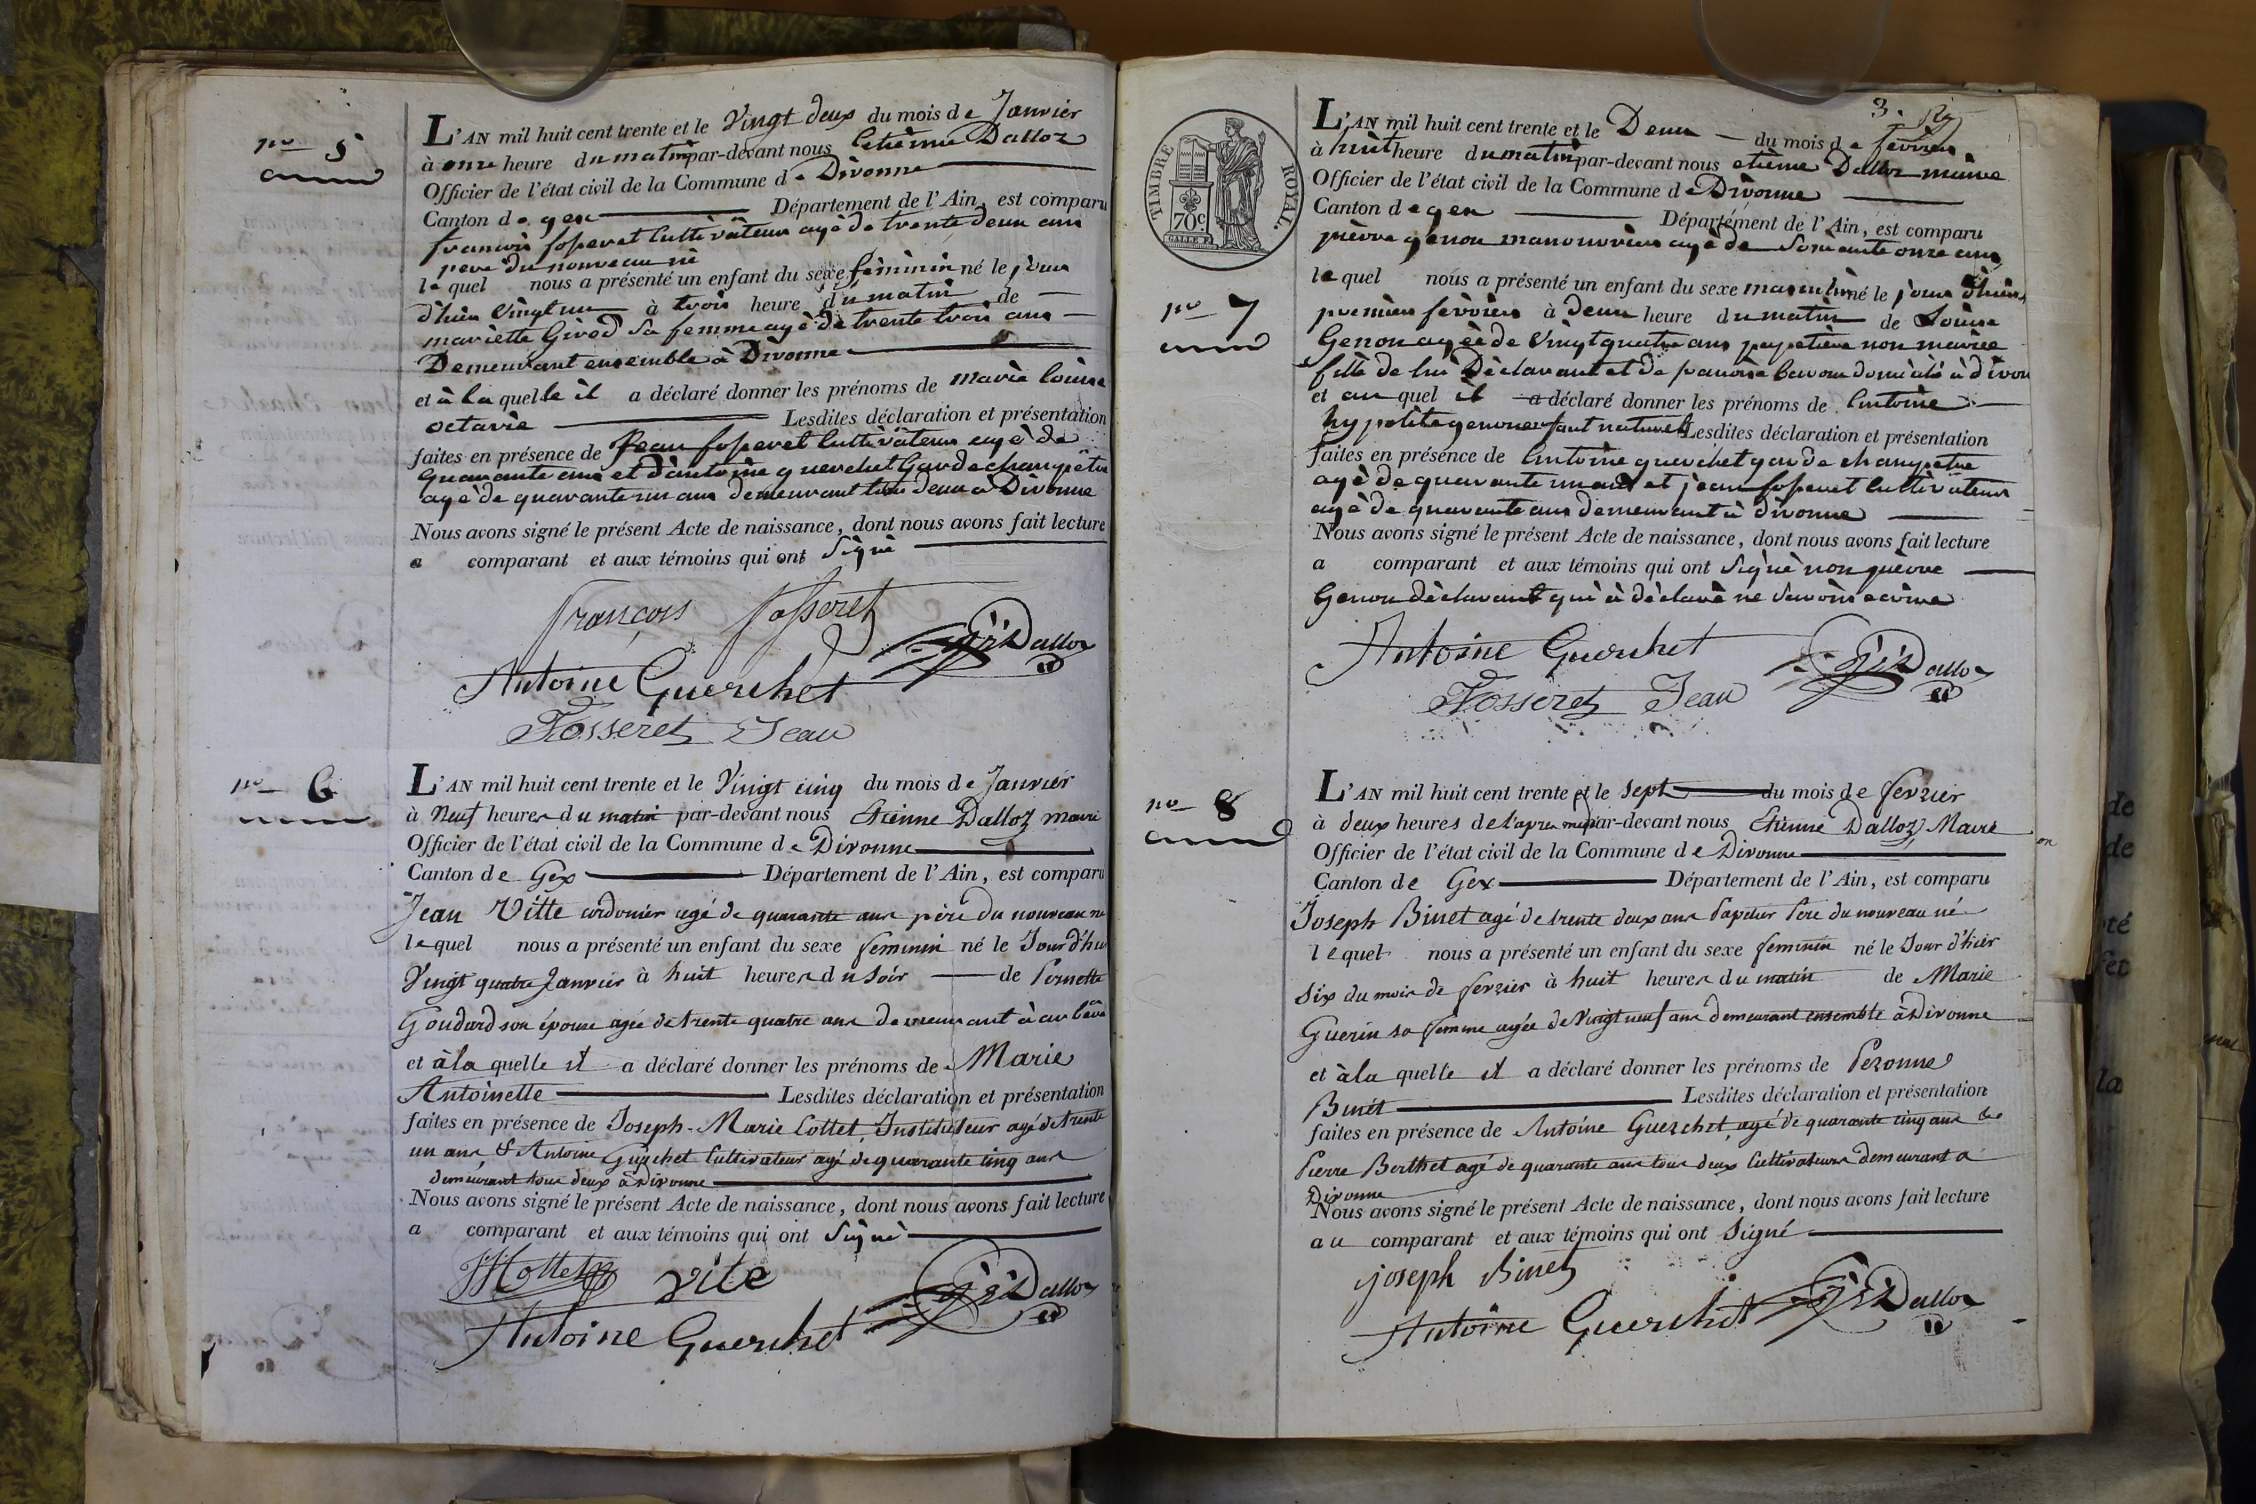 no 5
L'AN mil huit cent trente et le Vingt deux du mois de Janvier
à onze heure du matin par-devant nous Etiènne Dalloz
Officier de l'état civil de la Commune de Divonne
Canton de gex Département de l'Ain, est comparu
francois fosseret Cultivateur agé de trente deux ans
pere du nouveau né
lequel nous a présenté un enfant du sexe féminin né le jour
d'hier Vingt un à trois heure du matin de
mariette Girod sa femme agé de trente trois ans
Demeurant ensemble à Divonne
et à la quelle il a déclaré donner les prénoms de marie louise
octavie Lesdites déclaration et présentation
faites en présence de Jean fosseret Cultivateur agé de
quarante ans et d'antoine guerchet Garde champêtre
agé de quarante un ans demeurant tous deux a Divonne
Nous avons signé le présent Acte de naissance, dont nous avons fait lecture
a comparant et aux témoins qui ont Signé
françois fosseret
Dalloz
Antoine Guerchet
Fosseret Jean
no 6
L'AN mil huit cent trente et le Vingt cinq du mois de Janvier
à Neuf heures du matin par-devant nous Etienne Dalloz maire
Officier de l'état civil de la Commune de Divonne
Canton de Gex Département de l'Ain, est comparu
Jean Vitte cordonier agé de quarante ans père du nouveau né
lequel nous a présenté un enfant du sexe feminin né le Jour d'hier
Vingt quatre Janvier à huit heures du Soir de Pernette
Goudard son épouse agée de trente quatre ans demeurant à
et à la quelle il a déclaré donner les prénoms de Marie
Antoinette Lesdites déclaration et présentation
faites en présence de Joseph-Marie Cottet, Instituteur agé de trente
un ans & Antoine Guerchet Cultivateur agé de quarante cinq ans
demeurant tous deux à Divonne
Nous avons signé le présent Acte de naissance, dont nous avons fait lecture
a comparant et aux témoins qui ont Signé
vite
Dalloz
Antoine Guerchet
3.
TIMBRE ROYAL.
70c.
L'AN mil huit cent trente et le Deux du mois de février
à huit heure du matin par-devant nous etiènne Dalloz maire
Officier de l'état civil de la Commune de Divonne
Canton de gex Département de l'Ain, est comparu
no 7
pièrre genou manouvrier agé de Soixante onze ans
lequel nous a présenté un enfant du sexe masculin né le jour d'hier
premier février à deux heure du matin de Louise
Genou agée de Vingt quatre ans papetière non mariée
fille de lui Déclarant et de domicilié à divonne
et au quel il a déclaré donner les prénoms de Antoine
hypolite genou enfant naturel Lesdites déclaration et présentation
faites en présence de Antoine guerchet garde champetre
agé de quarante un ans et jean fosseret Cultivateur
agé de quarante ans demeurant à divonne
Nous avons signé le présent Acte de naissance, dont nous avons fait lecture
a comparant et aux témoins qui ont Signé non pièrre
Genou déclarant qui à déclaré ne Savoir ecrire
Antoine Guerchet
Dalloz
Fosseret Jean
no 8
L'AN mil huit cent trente et le Sept du mois de fevrier
à deux heures de l'apres midi par-devant nous Etienne Dalloz, Maire
Officier de l'état civil de la Commune de Divonne
Canton de Gex Département de l'Ain, est comparu
Joseph Binet agé de trente deux ans Papetier Pere du nouveau né
lequel nous a présenté un enfant du sexe feminin né le Jour d'hier
Six du mois de fevrier à huit heures du matin de Marie
Guerin sa femme agée de Vingt neuf ans demeurant ensemble à Divonne
et à la quelle il a déclaré donner les prénoms de Peronne
Binet Lesdites déclaration et présentation
faites en présence de Antoine Guerchet, agé de quarante cinq ans &
Pierre Berthet agé de quarante ans tous deux Cultivateurs demeurant a
Divonne
Nous avons signé le présent Acte de naissance, dont nous avons fait lecture
au comparant et aux témoins qui ont Signé
joseph Binet
Dalloz
Antoine Guerchet